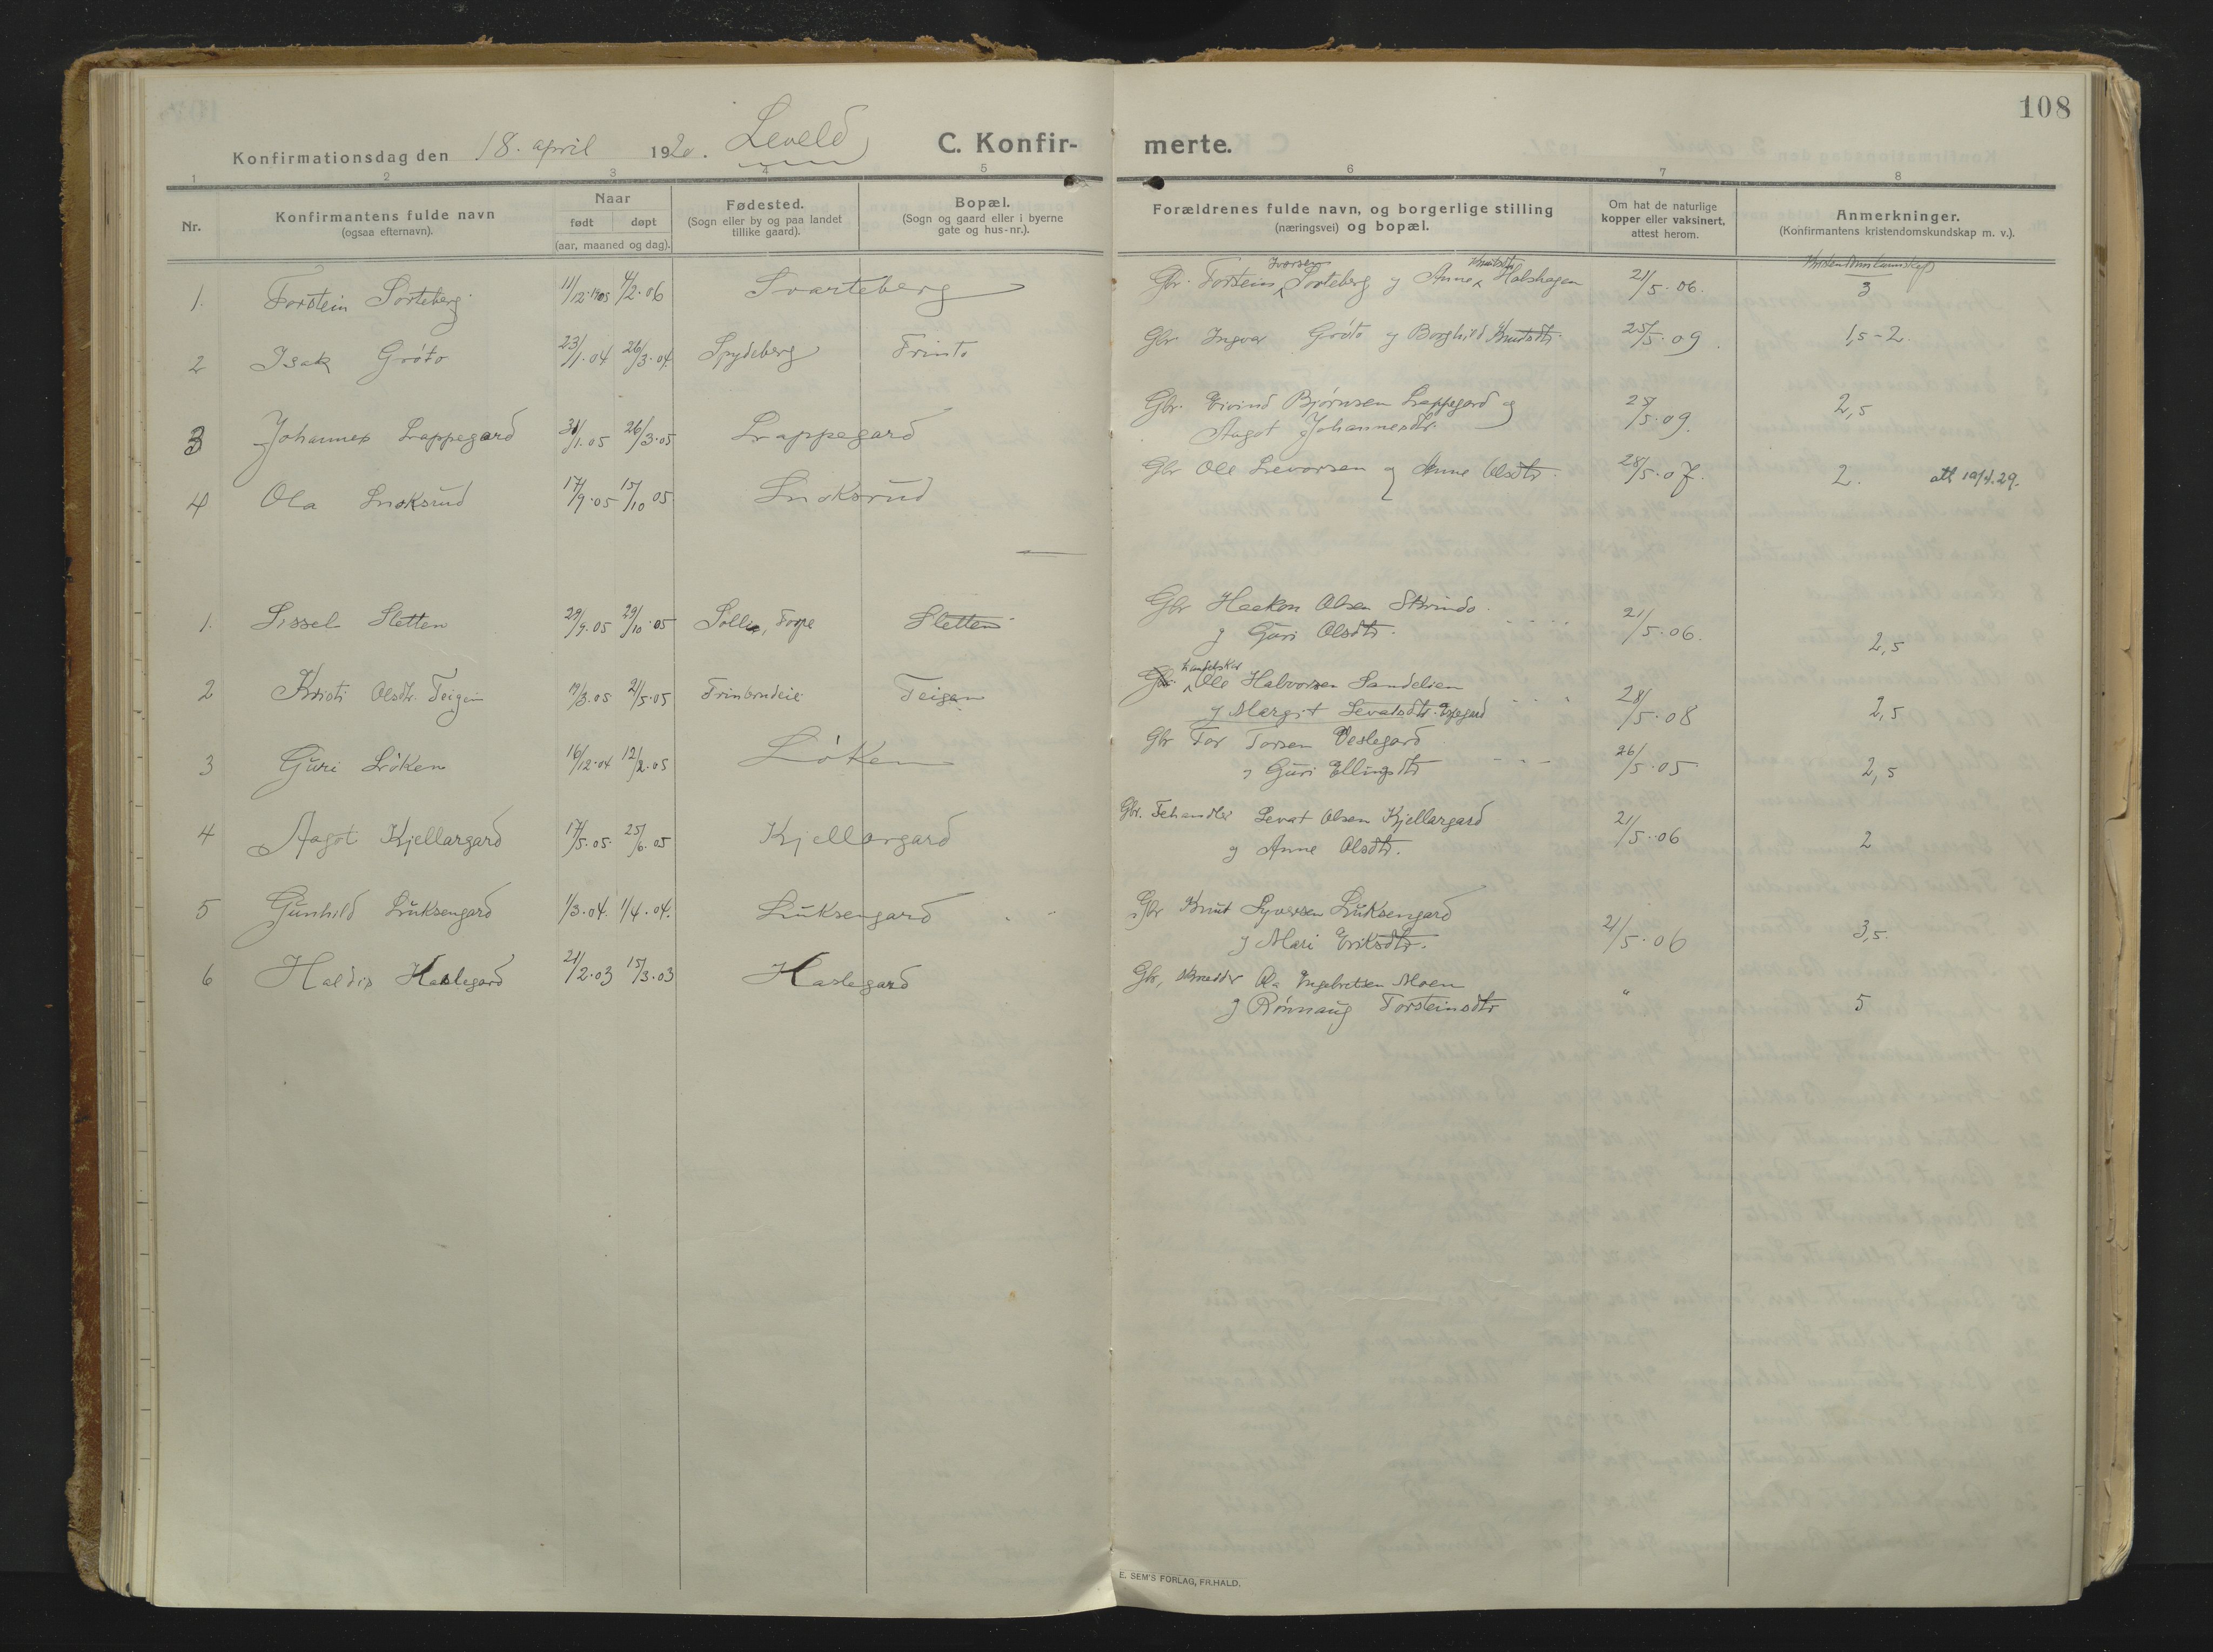 108
Konfirmationsdag den 18. april 1920. Leveld C. Konfir-
merte.
1 2 3 4 5 6 7 8
Nr.
Konfirmantens fulde navn
(ogsaa efternavn).
Naar
født døpt
(aar, maaned og dag).
Fødested.
(Sogn eller by og paa landet
tillike gaard).
Bopæl.
(Sogn og gaard eller i byerne
gate og hus-nr.).
Forældrenes fulde navn, og borgerlige stilling
(næringsvei) og bopæl.
Om hat de naturlige
kopper eller vaksinert,
attest herom.
Anmerkninger.
(Konfirmantens kristendomskundskap m. v.).
Kristendomskunnskap
1. Torstein Sorteberg 11/12.1905 4/2.06 Svarteberg Gbr. Torstein Iversen Sorteberg og Anne Knutsdtr Halshagen 21/5.06. 3
2 Isak Grøto 23/1.04 26/3.04. Spydeberg Trinto Gbr. Ingvar Grøto og Borghild Knutsdtr. 25/5.09. 1,5-2.
3 Johannes Lappegard 31/1.05 26/3.05 Lappegard Gbr. Eivind Bjørnsen Lappegard og
Aagot Johannesdtr. 25/5.09.
2,5
4 Ola Snoksrud 17/9.05 15/10 05 Snoksrud Gbr Ole Levorsen og Anne Olsdtr. 28/5.07. 2. att 19/4.29.
1. Sissel Sletten 29/9.05 29/10.05 Torpe Sletten Gbr Haakon Olsen Skrindo.
g Guri Olsdtr. 21/5.06. 2,5
2 Kristi Olsdtr. Teigen 19/3.05 21/5.05 Trinbrudeie Teigen Gbr. handelskar Ole Halvorsen Sandelien
g Margit Levatsdtr. Espegard 28/5.08 2,5
3 Guri Løken 16/12.04 12/2.05 Løken Gbr Tor Torsen Veslegard
g Guri Ellingsdtr 26/5.05 2,5
4 Aagot Kjellargard 17/5.05. 25/6.05 Kjellargard Gbr. Fehandler Levat Olsen Kjellargard
g Anne Olsdtr. 21/5.06 2
5 Gunhild Luksengard 1/3.04. 1/4.04. Luksengard Gbr Knut Syversen Luksengard
g Mari Eriksdtr. 21/5.06 3,5.
6 Haldis Haslegard 21/2.03 15/3.03 Haslegard Gbr, skredder Ola Engebretsen Moen
g Rønnaug Torsteinsdtr " 5
E. SEM'S FORLAG, FR.HALD.